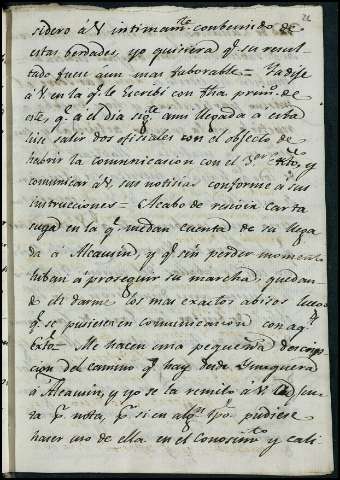 22
sidero á V intimamte. conbensido de
estas berdades, yo quisiera qe. su resul-
tado fuese áun mas faborable = Ya dife
á V en la qe. le Escribi con fha. primo. de
este, qe. a el dia sigte. a mi llegada a esta
hise salir dos ofisiales con el objecto de
habrir la comunicasion con el 3er. Exto. y
comunicar á V. sus notisias conforme á sus
instrucciones = Acabo de resivir carta
suya en la qe. me dan cuenta de su llega
da á Alcauiri, y qe. sin perder momento
iban á proseguir su marcha, quedan
de darme los mas exactos abisos luego
qe. se pusiesen en comunicasion con aql.
Exto. = Me hacen una pequeña descrip
cion del camino qe. hay desde Junquera
á Alcauiri, y yo se la remito á V. adjun
ta pr. nota, pr. si en algn. tpo. pudiese
haser uso de ella en el Conosimto. y cali-